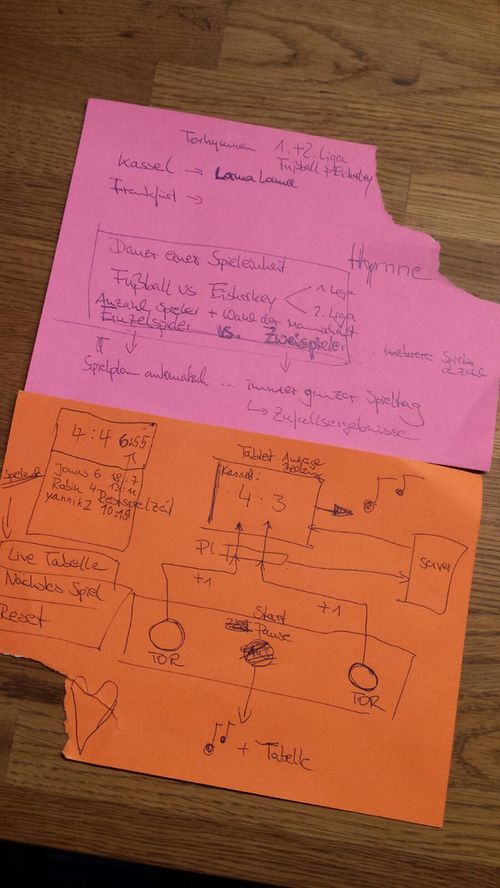 Torhymnen 1.+2. Liga
Fußball + Eishockey
Kassel → Lama Lama
Frankfurt →
Hymne
Dauer einer Spieleinheit
Fußball vs Eishockey < 1. Liga
2. Liga
Anzahl Spieler + Wahl der Mannschaft
Einzelspieler vs. Zweispieler ... mehrere Spieler
Spielplan automatisch ... immer ganzer Spieltag
↳ Zufallsergebnisse
4:4 6:55
Jonas 6 18:7
Robin 4
Restspielzeit
yannik 2 10:15
Live Tabelle
Nächstes Spiel
Reset
Tablet
Kassel:
4 . 3
PI
Server
+1
+1
Start
Pause
TOR
TOR
+ Tabelle